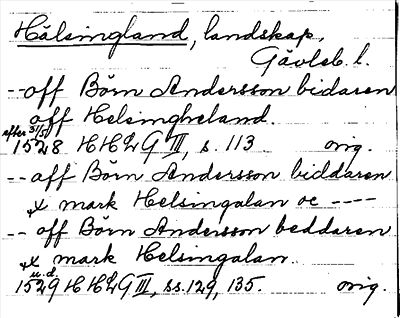 Hälsingland, landskap,
Gävleb. l.
-- off Börn Andersson bidaren
off Helsingheland.
efter 31/5
1528 HH2G III, s. 113 orig.
-- aff Börn Andersson biddaren
x mark Helsingalan oc ----
-- off Börn Andersson beddaren
x mark Helsingalan.
u. d.
1529 HH2G III, ss. 129, 135. orig.